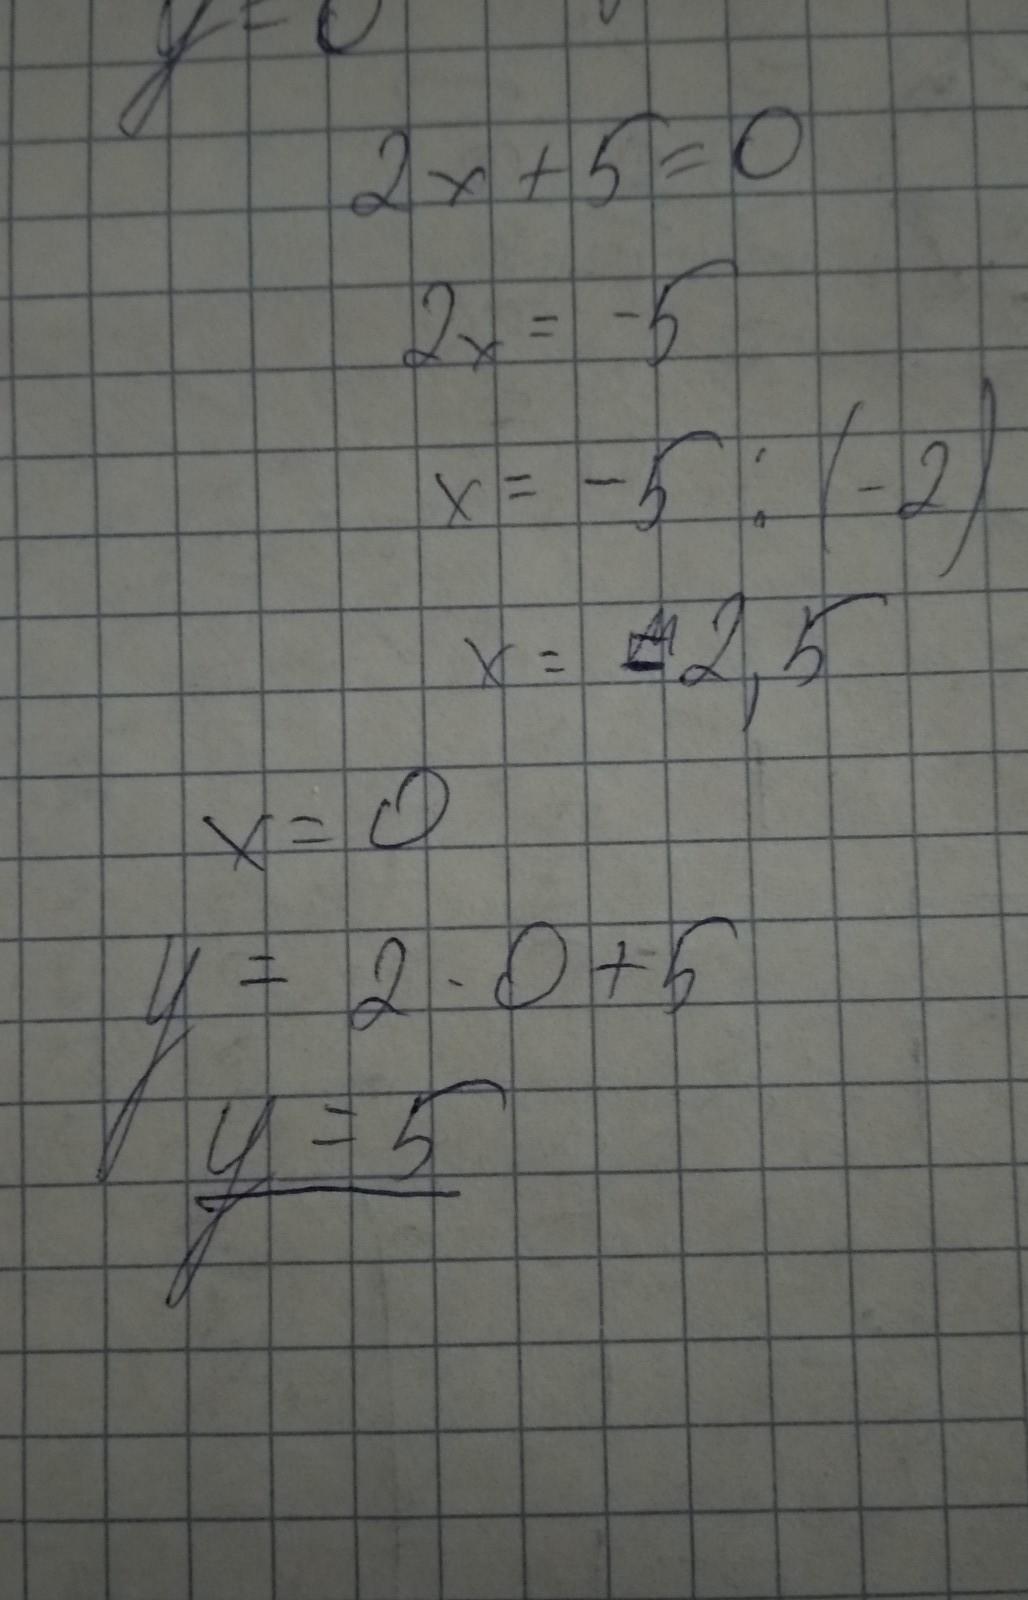 y = 0
2x + 5 = 0
2x = -5
x = -5 : (-2)
x = 2,5
x = 0
y = 2 · 0 + 5
y = 5